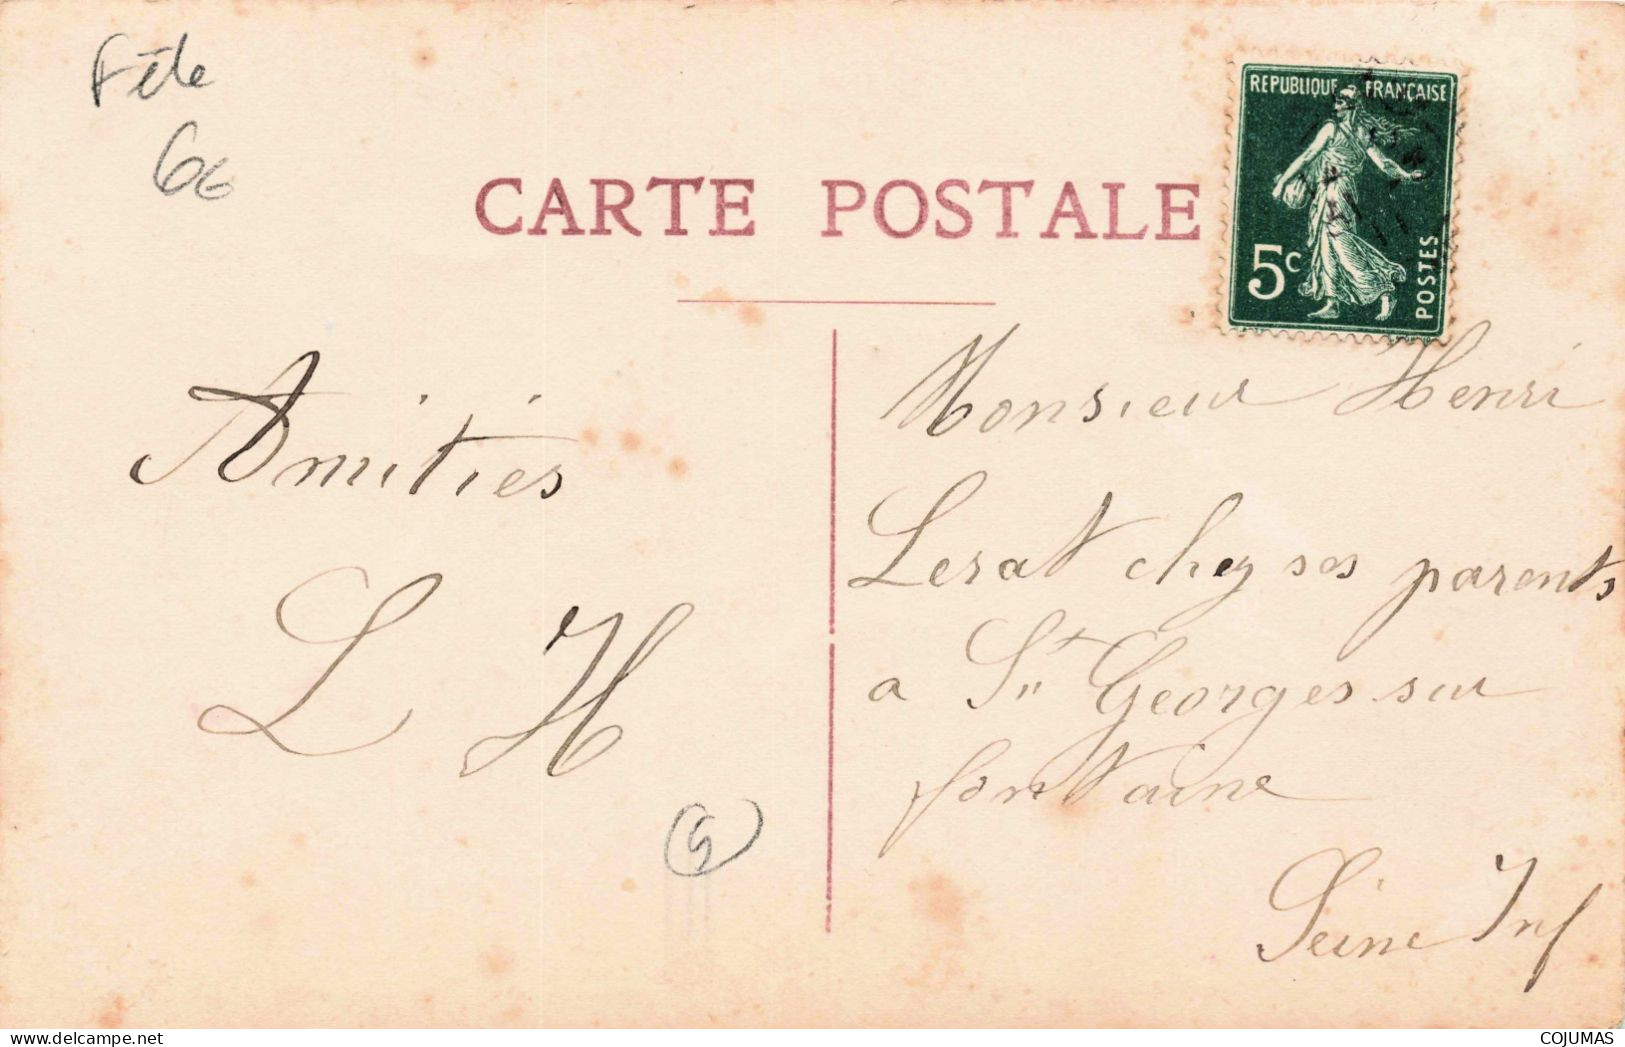 Fête
6€
CARTE POSTALE
REPUBLIQUE FRANÇAISE
5c
POSTES
Amitiés
L H
5
Monsieur Henri
Lerat chez ses parents
a St Georges sur
fontaine
Seine Inf
COJUMAS